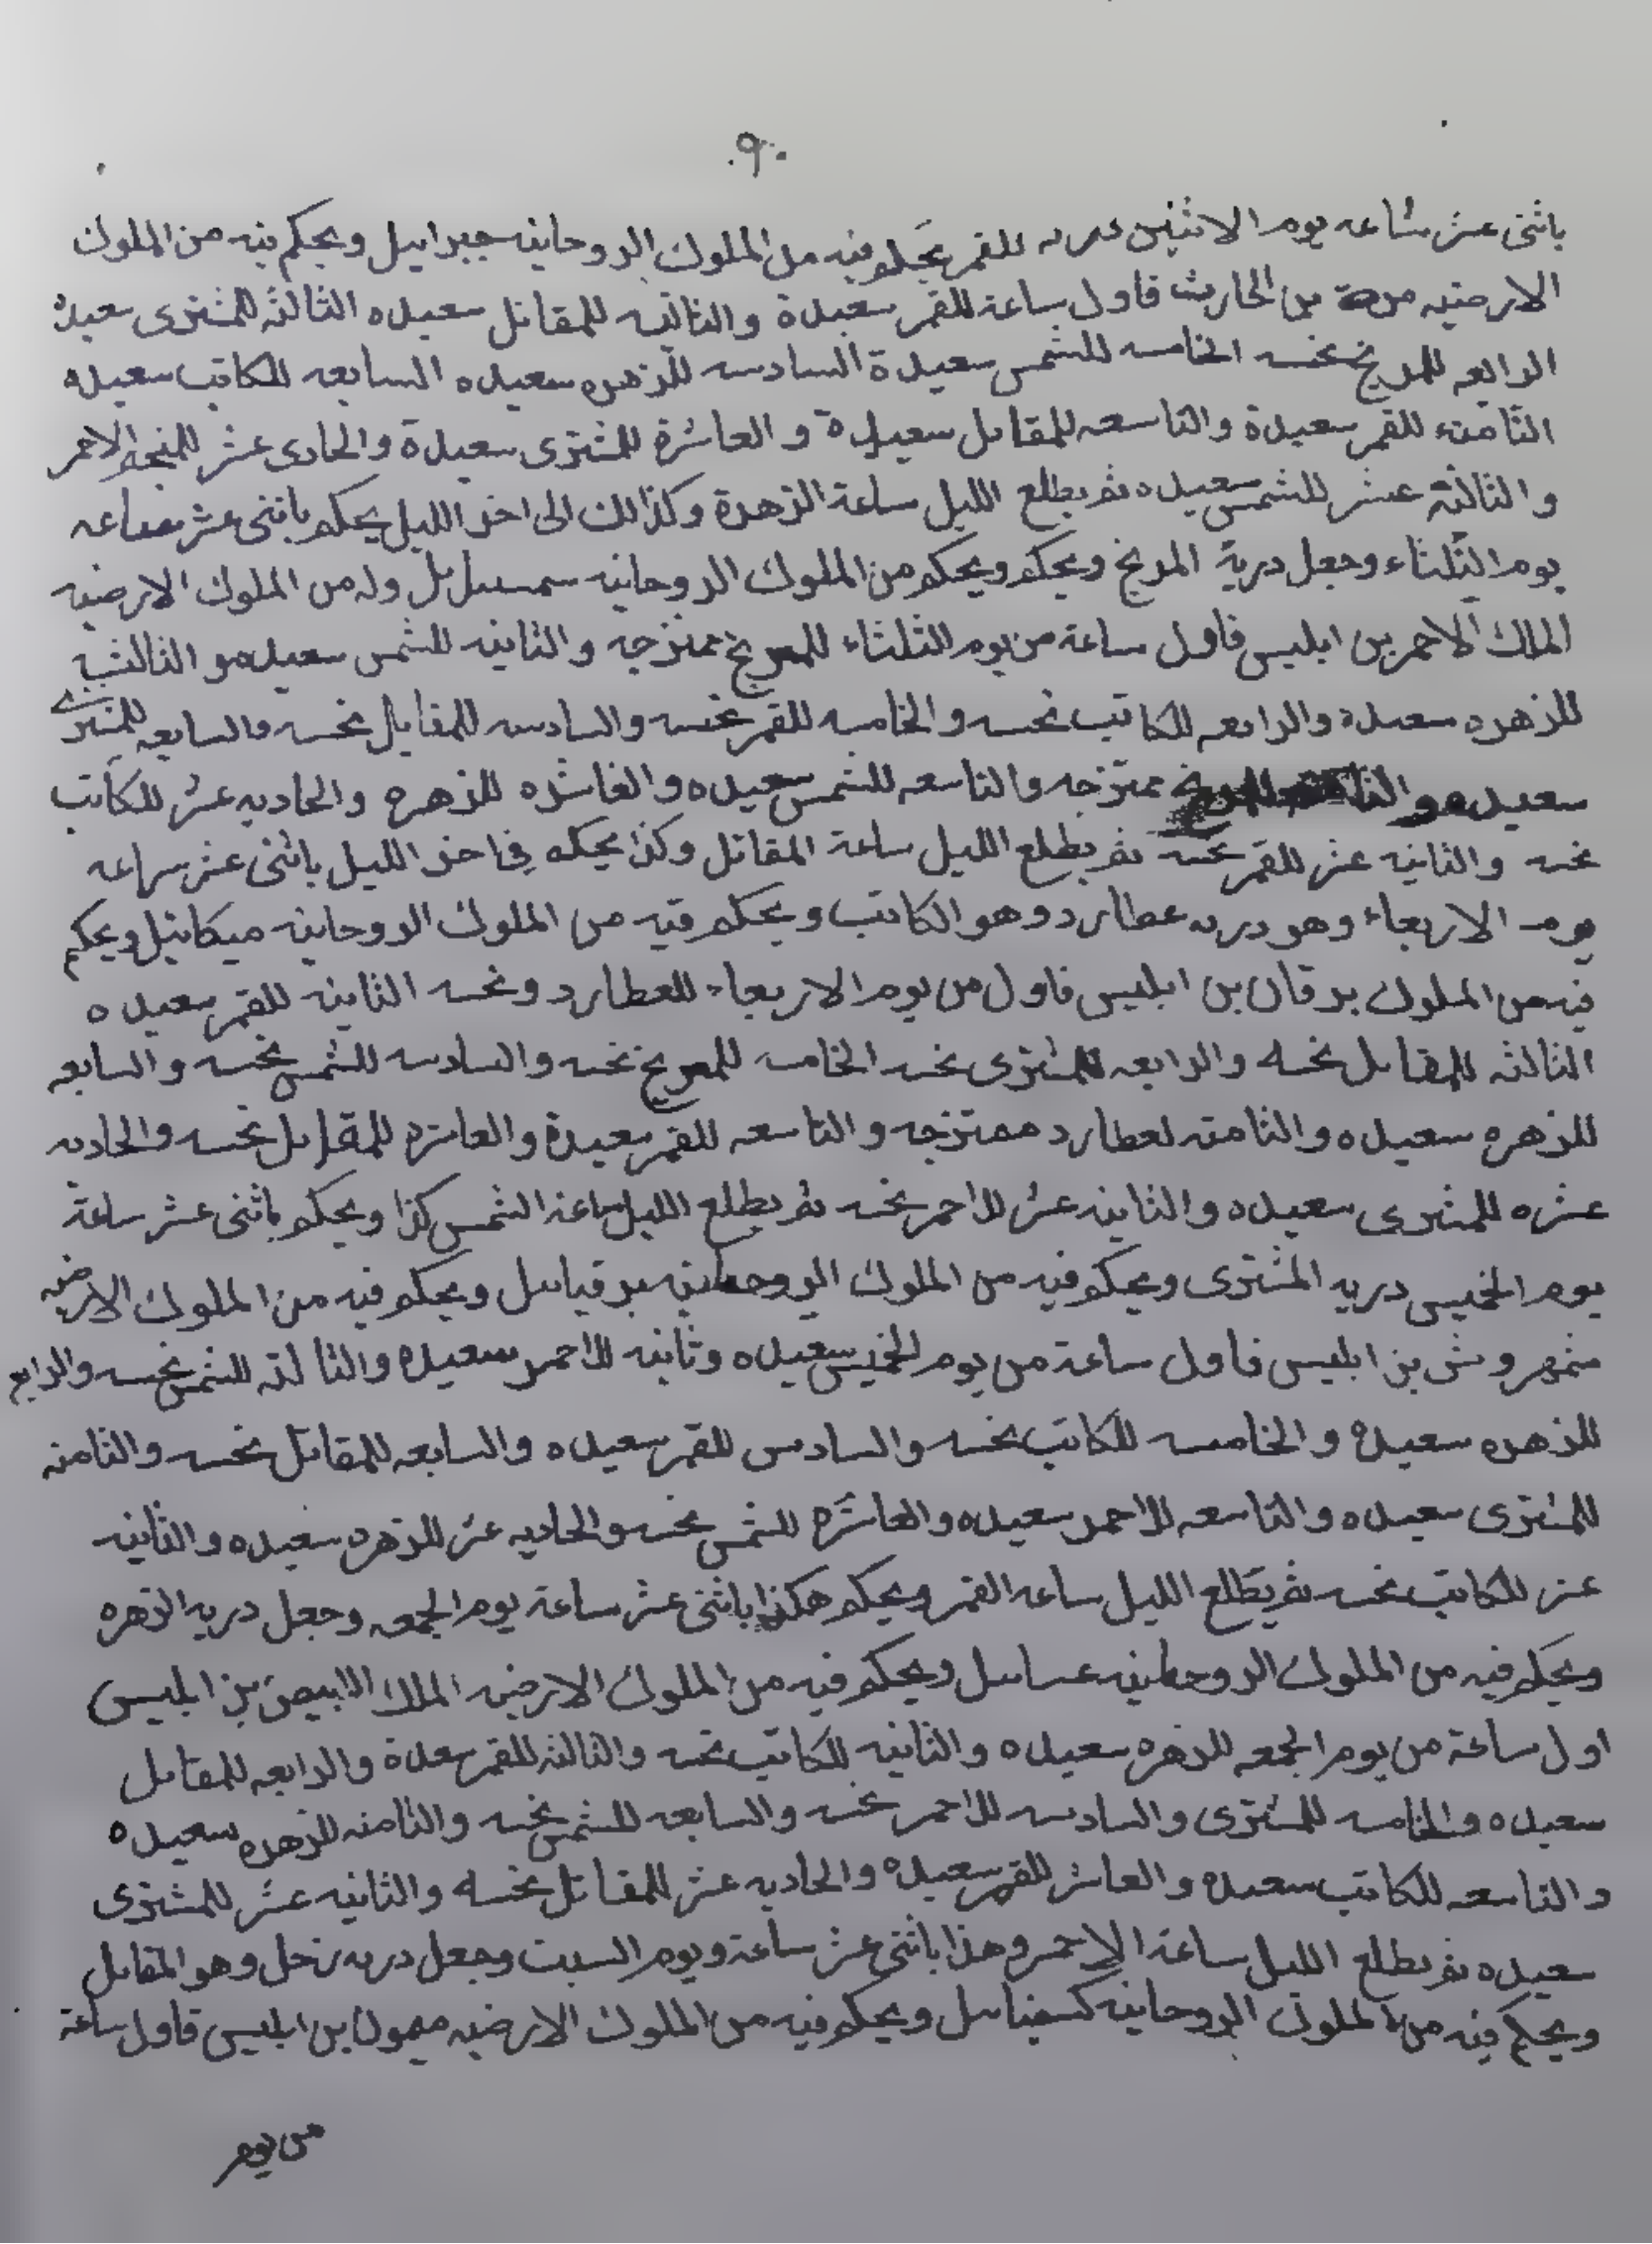 .٩.
باثنى عشر ساعه يوم الاثنين دريه للقمر يحكم فيه من الملوك الروحانيه جبراييل ويحكم فيه من الملوك
الارضيه مرة بن الحارث فاول ساعة للقمر سعيدة والثانيه للمقاتل سعيده الثالثه للمشترى سعيدة
الرابعه للمريخ نحسه الخامسه للشمس سعيدة السادسه للزهره سعيده السابعه للكاتب سعيده
الثامنه للقمر سعيدة والتاسعه للمقاتل سعيدة و العاشرة للمشترى سعيدة والحادى عشر للنجم الاحمر
والثالثة عشر للشمس سعيده ثم يطلع الليل ساعة الزهرة وكذالك الى اخر الليل يحكم باثنى عشر ساعه
يوم الثلثاء وجعل درية المريخ ويحكم ويحكم من الملوك الروحانيه وله من الملوك الارضيه
الملك الاحمر بن ابليس فاول ساعة من يوم الثلثاء للمريخ ممتزجه والثانيه للشمس سعيده والثالثيه
للزهره سعيده والرابعه للكاتب نحسه والخامسه للقمر نحسه والسادسه للمقاتل نحسه والسابعه للمشترى
سعيده والثامنه للمريخ ممتزجه والتاسعه للشمس سعيده والعاشره للزهره والحاديه عشر للكاتب
نحسه والثانيه عشر للقمر نحسه ثم يطلع الليل ساعة المقاتل وكذا يحكم فى اخر الليل باثنى عشر ساعه
يوم الاربعاء وهو دريه عطارد وهو الكاتب ويحكم فيه من الملوك الروحانيه ميكائيل ويحكم
فيه من الملوك برقان بن ابليس فاول من يوم الاربعاء للعطارد ونحسه الثانيه للقمر سعيده
الثالثه للمقاتل نحسه والرابعه للمشترى نحسه الخامسه للمريخ نحسه والسادسه للشمس نحسه والسابعه
للزهره سعيده والثامنه لعطارد ممتزجه والتاسعه للقمر سعيدة والعاشره للمقاتل نحسه والحاديه
عشره للمشترى سعيده والثانيه عشر للاحمر نحسه ثم يطلع الليل ساعة الشمس كذا ويحكم باثنى عشر ساعة
يوم الخميس دريه المشترى ويحكم فيه من الملوك الروحانيه برقياييل ويحكم فيه من الملوك الارضيه
شمهروش بن ابليس فاول ساعة من يوم الخميس سعيده وثانيه للاحمر سعيده والثالثه للشمس نحسه والرابع
للزهره سعيدة والخامسه للكاتب نحسه والسادس للقمر سعيده والسابعه للمقاتل نحسه والثامنه
للمشترى سعيده والتاسعه للاحمر سعيده والعاشره للشمس نحسه والحاديه عشر للزهره سعيده والثانيه
عشر للكاتب نحسه ثم يطلع الليل ساعه القمر ويحكم هكذا باثنى عشر ساعة يوم الجمعه وجعل دريه الزهره
ويحكم فيه من الملوك الروحانيه عنياييل ويحكم فيه من الملوك الارضيه الملك الابيض بن ابليس
اول ساعة من يوم الجمعه للزهره سعيده والثانيه للكاتب نحسه والثالثه للقمر سعدة والرابعه للمقاتل
سعيده والخامسه للمشترى والسادسه للاحمر نحسه والسابعه للشمس نحسه والثامنه للزهره سعيده
والتاسعه للكاتب سعيده والعاشر للقمر سعيده والحاديه عشر للمقاتل نحسه والثانيه عشر للمشترى
سعيده ثم يطلع الليل ساعة الاحمر وهذا باثنى عشر ساعة ويوم السبت وجعل دريه زحل وهو المقاتل
ويحكم فيه من الملوك الروحانيه كسفياييل ويحكم فيه من الملوك الارضيه ميمون بن ابليس فاول ساعة
من يوم